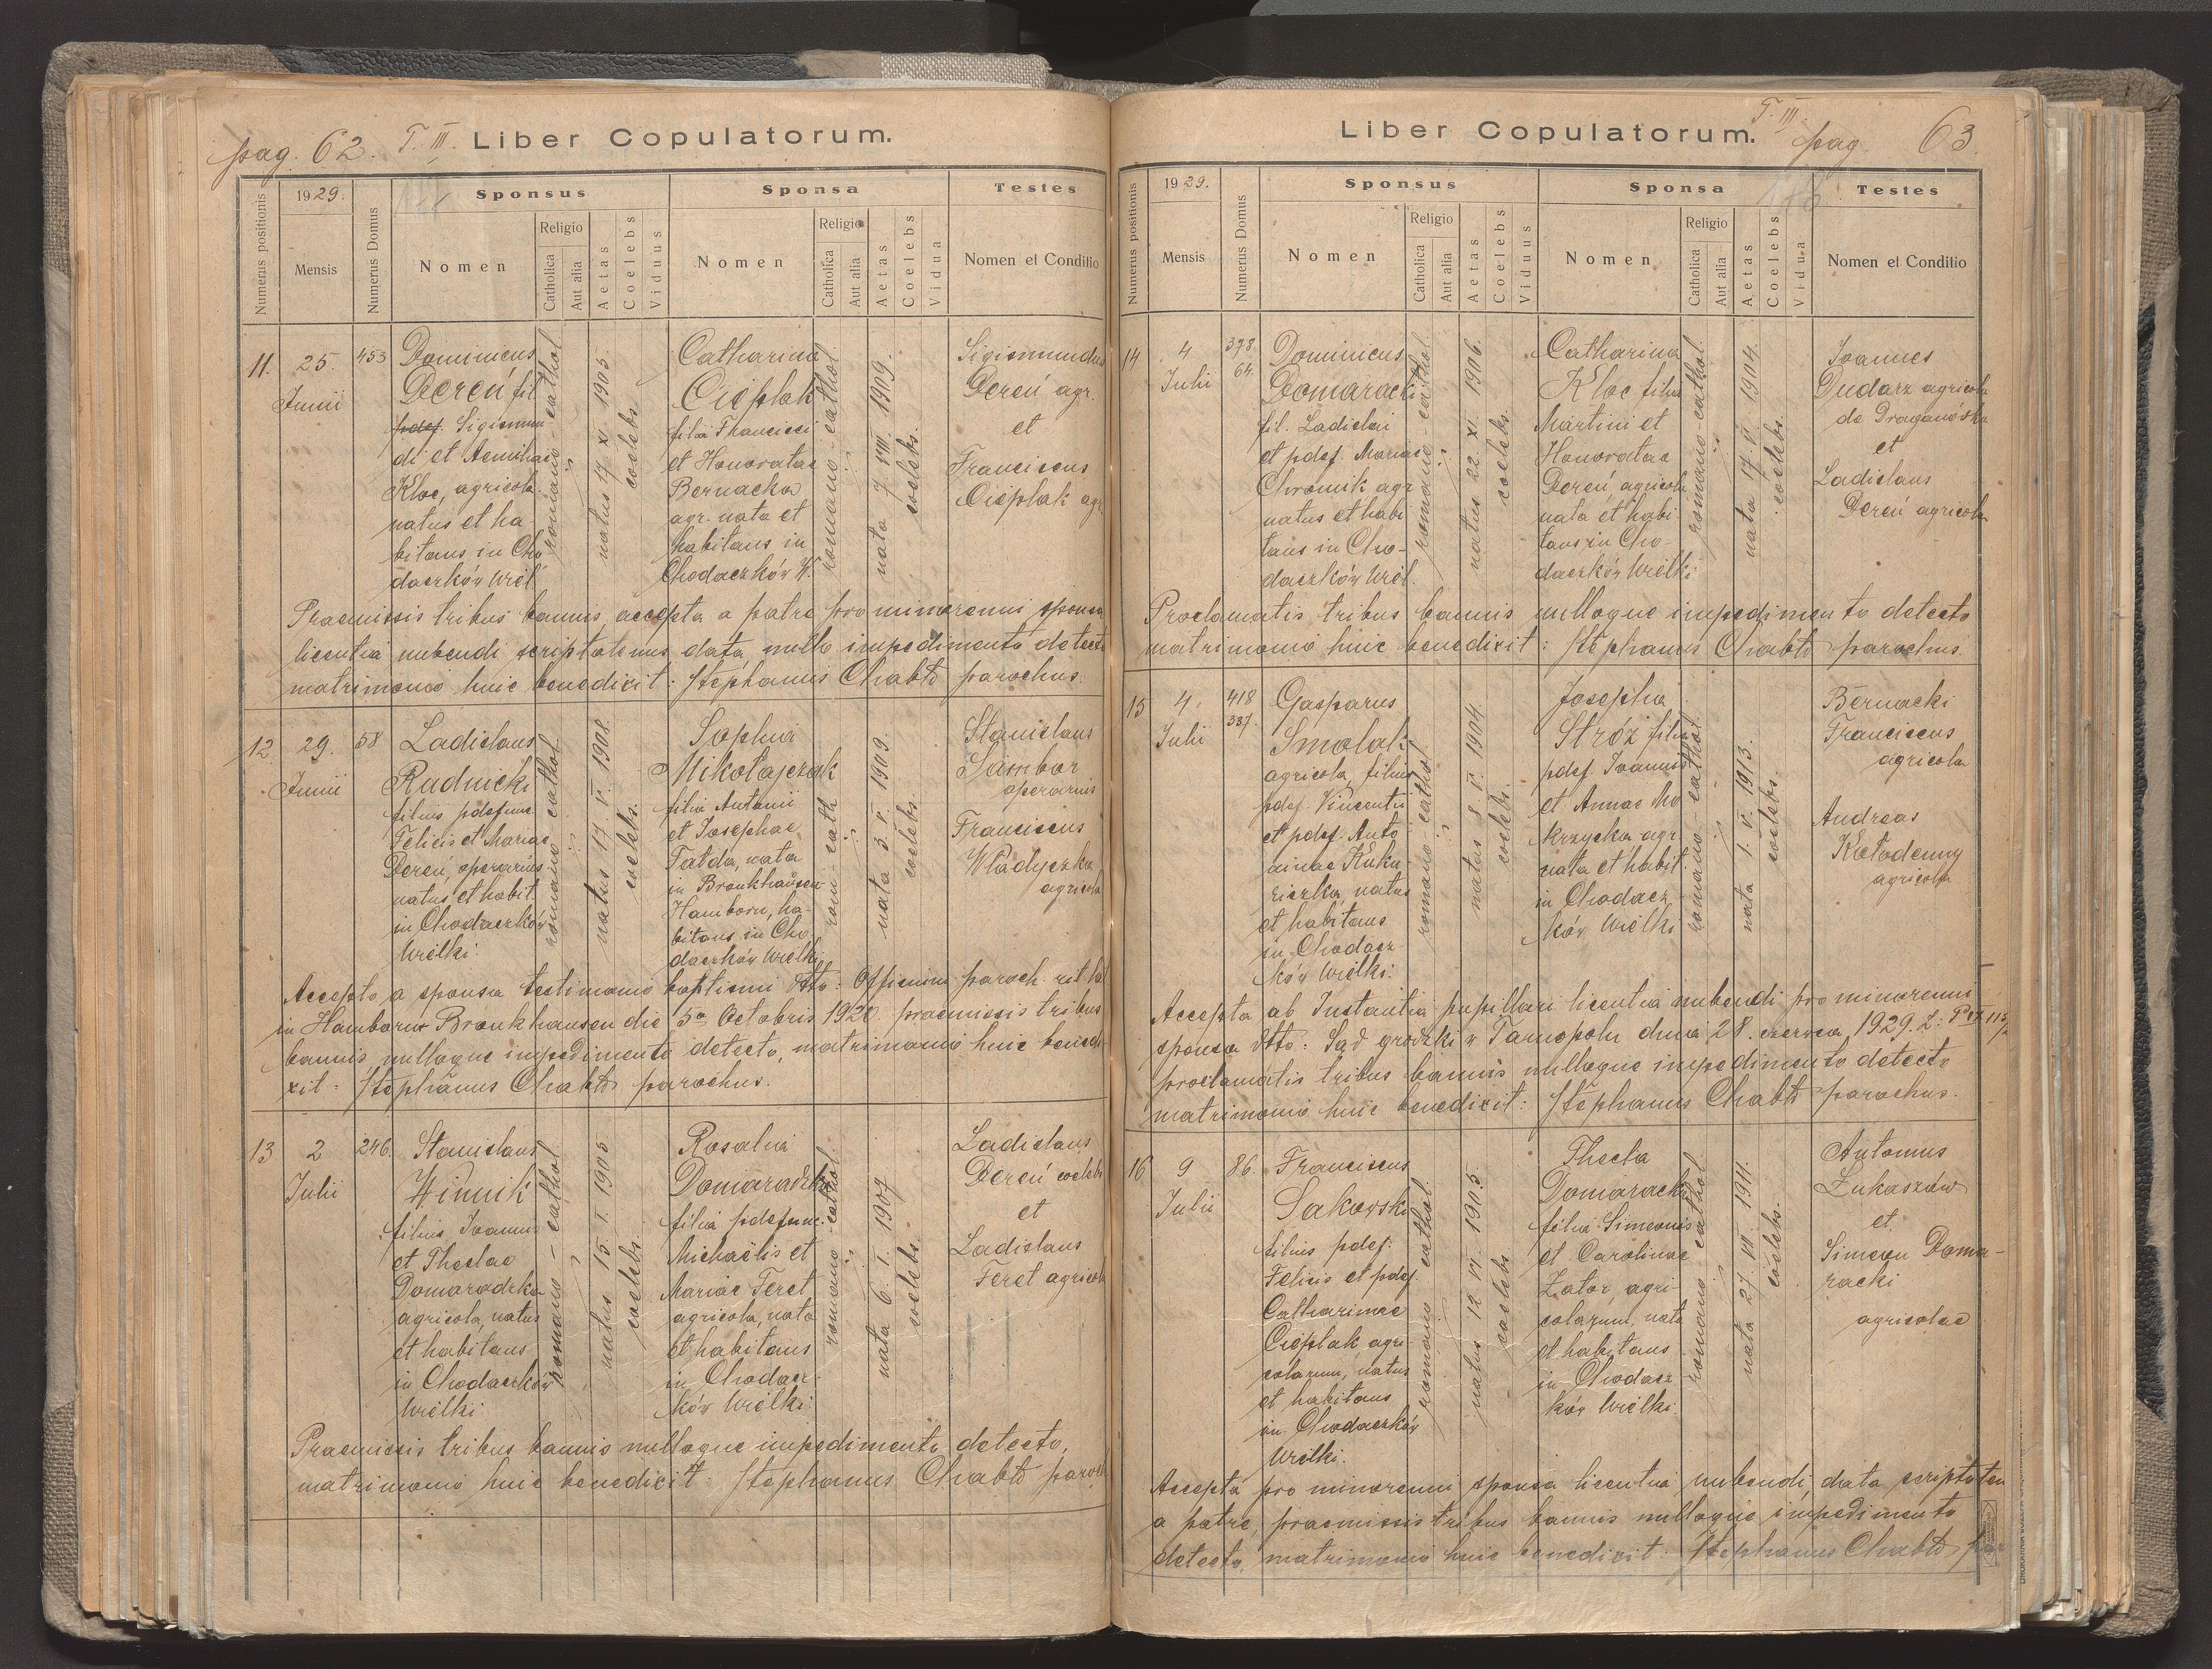 pag. 62. T. III. Liber Copulatorum.
Numerus positionis
1929.
Mensis
Numerus Domus
Sponsus
Nomen
Religio
Catholica
Aut alia
Aetas
Coelebs
Viduus
Sponsa
Nomen
Religio
Catholica
Aut alia
Aetas
Coelebs
Vidua
Testes
Nomen et Conditio
11.
25.
Junii
453
Dominicus
Dereń fil
pdef. Sigismun-
di et Aemiliae
Kloc, agricola
natus et ha
bitans in Cho
daczków Wiel
romano-cathol.
natus 17. XI. 1905
coelebs.
Catharina
Cieplak
filia Francisci
et Honoratae
Bernacka
agr. nata et
habitans in
Chodaczków W.
romano-cathol.
nata 7. VIII. 1909.
coelebs.
Sigismundus
Dereń agr.
et
Franciscus
Cieplak agr.
Praemissis tribus bannis, accepta a patre pro minorenni sponsa
licentia nubendi scriptotenus data, nullo impedimento detecto
matrimonio huic benedixit: Stephanus Chabło parochus.
12
29.
Junii
58
Ladislaus
Radnicki
filius pdefunc.
Felicis et Mariae
Dereń, operarius
natus et habit.
in Chodaczków
Wielki.
romano cathol
natus 17. V. 1908.
coelebs.
Sophia
Mikołajczak
filia Antonii
et Josephae
Tatda, nata
in Bronkhausen
Hamborn, ha-
bitans in Cho
daczków Wielki
rom-cath
nata 3. V. 1909.
coelebs.
Stanislaus
Sambor
operarius
Franciscus
Władyczka
agricola
Accepto, a sponsa testimonio baptismi dtto: Officium paroch rit lat
in Hamborn Bronkhausen die 5a Octobris 1920. praemissis tribus
bannis nulloque impedimento detecto, matrimonio huic benedi-
xit: Stephanus Chabło parochus.
13
2
Julii
246.
Stanislaus
Winnik
filius Joannis
et Theclae
Domaradzka
agricola, natus
et habitans
in Chodaczków
Wielki
romano-cathol.
natus 15. I. 1905
coelebs.
Rosalia
Domaradzka
filia pdefunc.
Michaëlis et
Mariae Feret
agricola, nata
et habitans
in Chodacz-
ków Wielki.
romano-cathol.
nata 6. I. 1907
coelebs.
Ladislaus
Dereń coelebs
et
Ladislaus
Feret agricola
Praemissis tribus bannis nulloque impedimento detecto,
matrimonio huic benedixit: Stephanus Chabło paroch
Liber Copulatorum. T. III. pag. 63.
Numerus positionis
1929.
Mensis
Numerus Domus
Sponsus
Nomen
Religio
Catholica
Aut alia
Aetas
Coelebs
Viduus
Sponsa
Nomen
Religio
Catholica
Aut alia
Aetas
Coelebs
Vidua
Testes
Nomen et Conditio
14
4
Julii
378.
64.
Dominicus
Domaracki
fil. Ladislai
et pdef. Mariae
Chromik agr
natus et habi
tans in Cho-
daczków Wiel.
romano-cathol
natus 22. XI. 1906.
coelebs.
Catharina
Kloc filia
Martini et
Honoratae
Dereń agricola
nata et habi
tans in Cho-
daczków Wielki
romano-cathol.
nata 17. V. 1904.
coelebs.
Joannes
Dudarz agricola
de Draganówka
et
Ladislaus
Dereń agricola
Proclamatis tribus bannis nulloque impedimento detecto
matrimonio huic benedixit: Stephanus Chabło parochus.
15
4.
Julii
418
387.
Gasparus
Smolak
agricola, filius
pdef. Vincentii
et pdef. Anto
ninae Kuku-
riczka, natus
et habitans
in Chodacz-
ków Wielki.
romano-cathol.
natus 8 V. 1904.
coelebs.
Josepha
Stróż filia
pdef. Joannis
et Annae Mo
krzycka agr.
nata et habit.
in Chodacz
ków Wielki
romano-cathol.
nata 1. V. 1913.
coelebs.
Bernacki
Franciscus
agricola
Andreas
agricola
Accepta ab Instantia pupillari licentia nubendi pro minorenni
sponsa dtto: Sąd grodzki w Tarnopolu dnia 28. czerwca 1929. L:
proclamatis tribus bannis nulloque impedimento detecto
matrimonio huic benedixit: Stephanus Chabło parochus.
16
9
Julii
86.
Franciscus
Sakowski
filius pdef.
Felicis et pdef.
Catharinae
Cieplak, agri-
colarum, natus
et habitans
in Chodaczków
Wielki.
romano cathol.
natus 12 VI. 1905.
coelebs
Thecla
Domaracka
filia Simeonis
et Carolinae
Zator, agri-
colarum, nata
et habitans
in Chodacz
ków Wielki.
romano cathol
nata 27. VII. 1911.
coelebs.
Antonius
Łukaszów
et
Simeon Doma-
racki
agricolae
Accepta pro minorenni sponsa licentia nubendi, data scriptoten
a patre, praemissis tribus bannis nulloque impedimento
detecto, matrimonio huic benedixit: Stephanus Chabło par